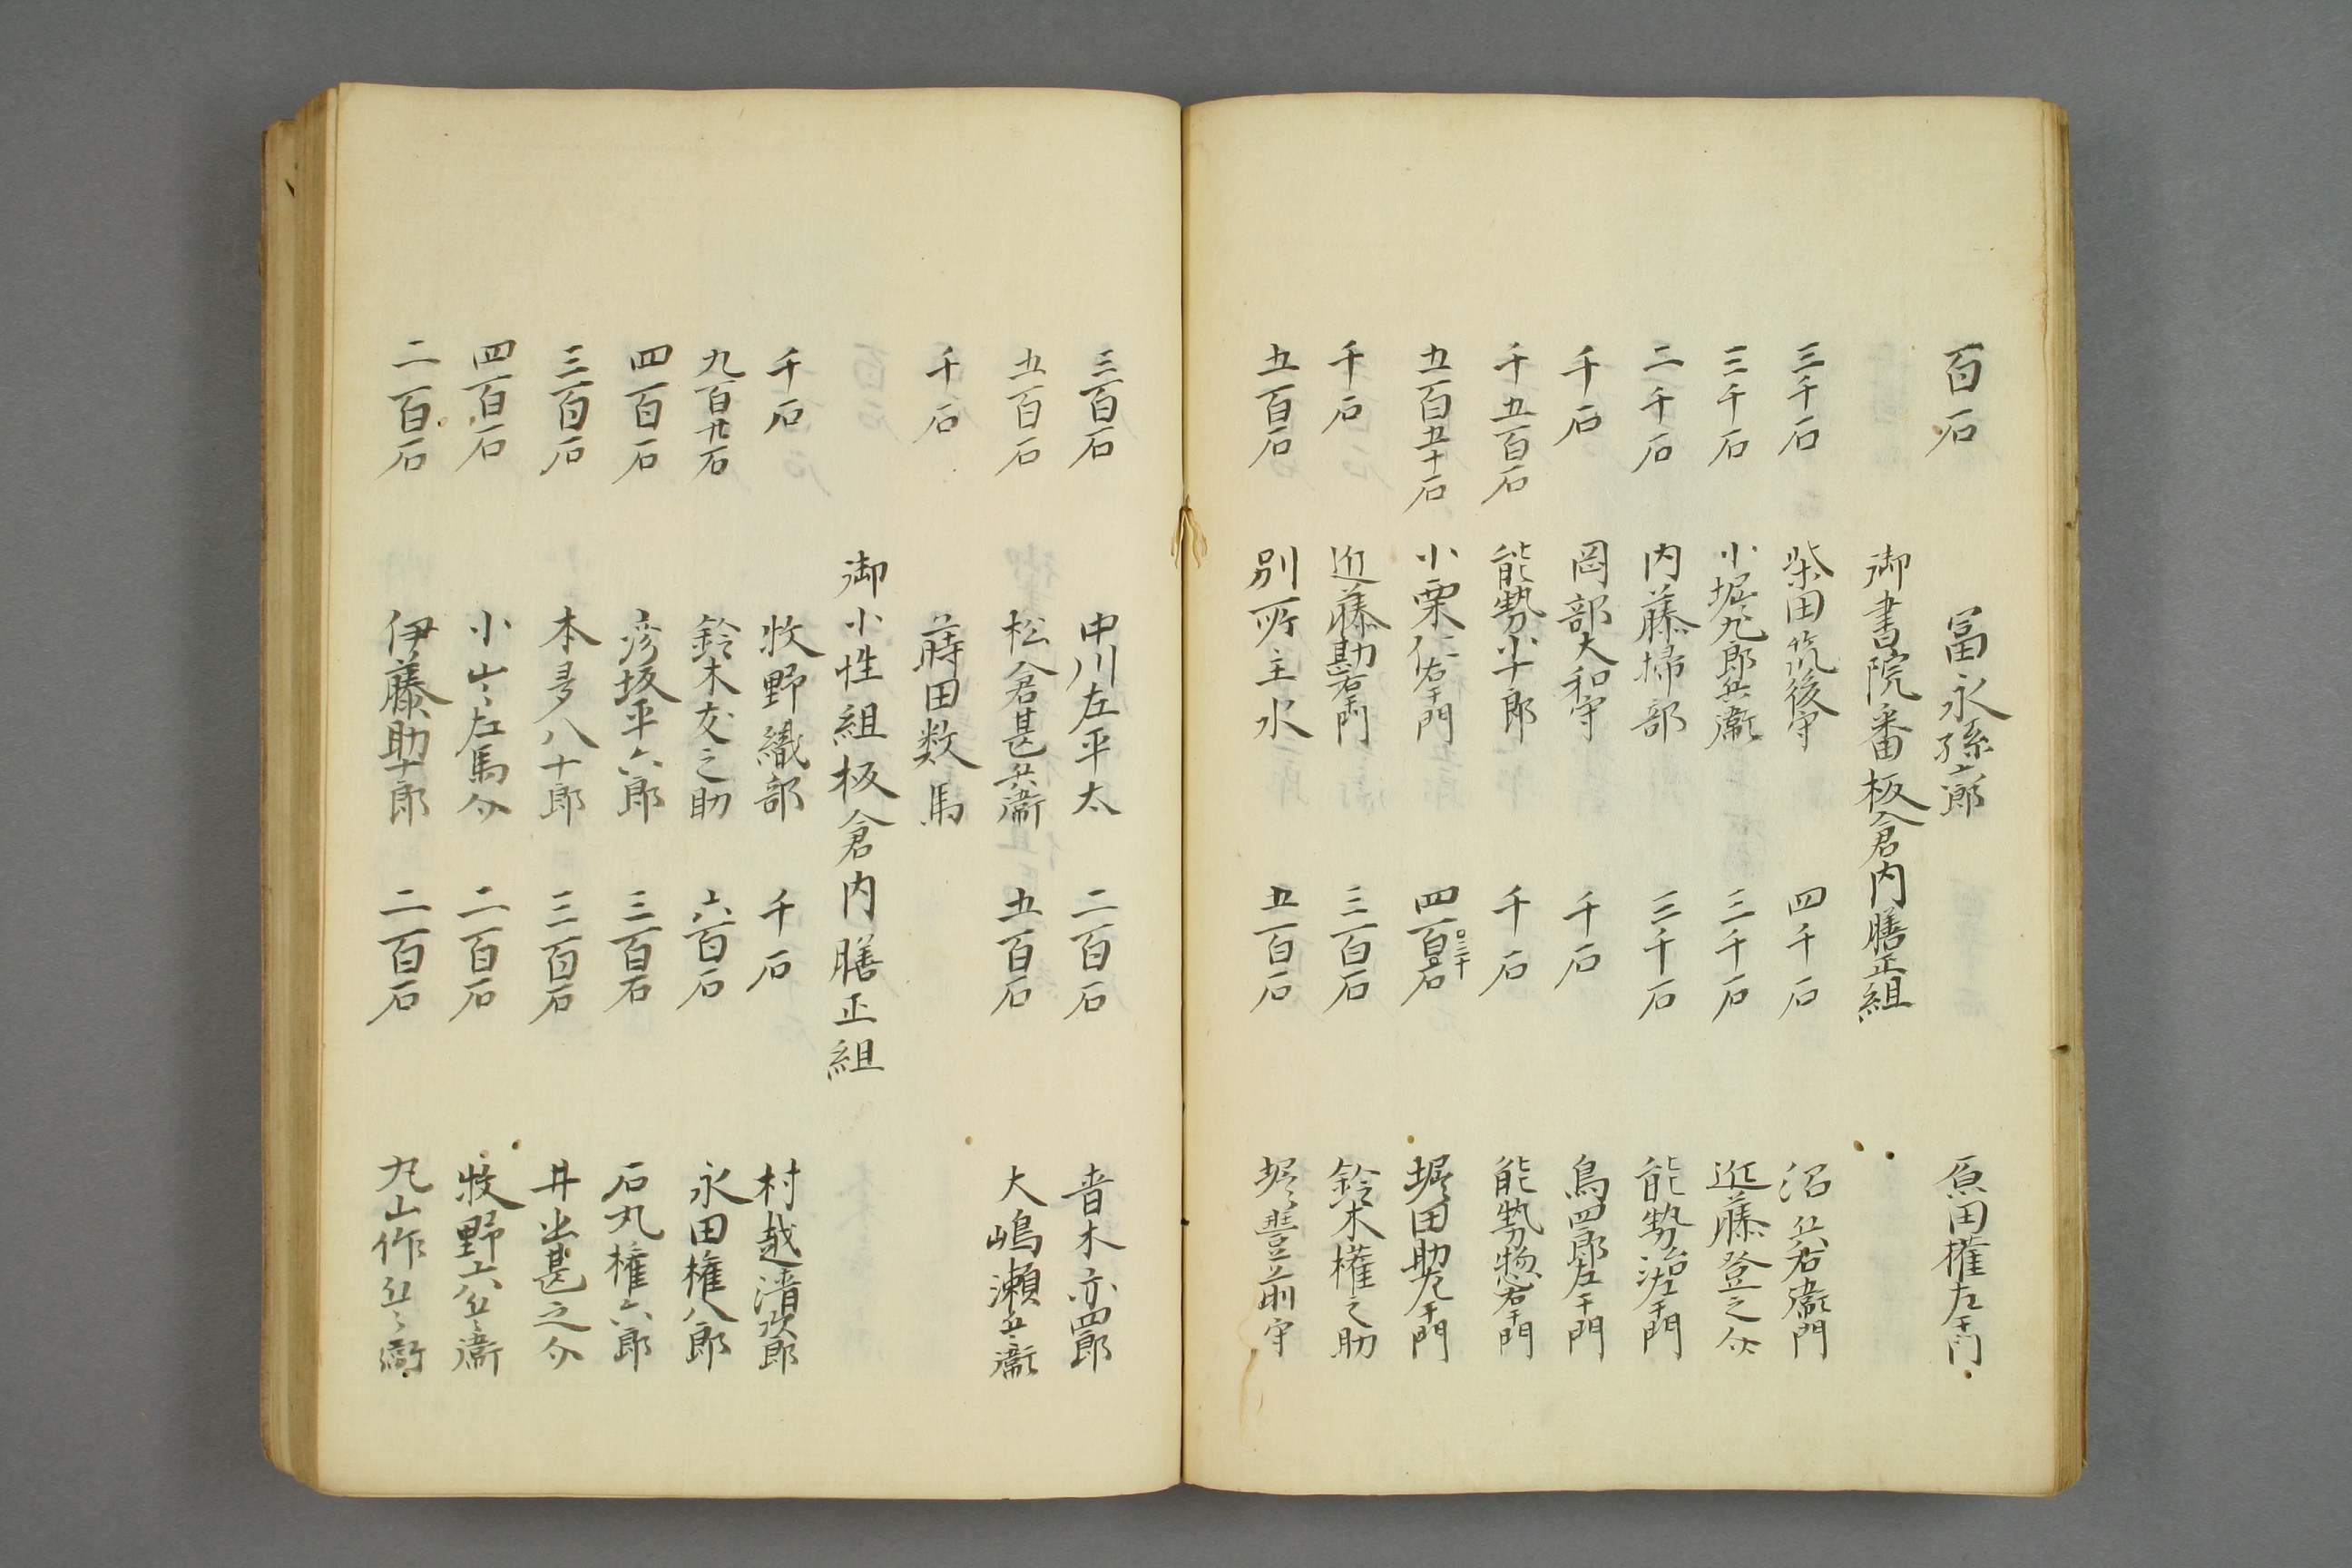 百石 冨永孫六郎 原田権左衛門
御書院番板倉内膳正組
三千石 柴田筑後守 四千石 沼兵右衛門
三千石 小堀九郎兵衛 三千石 近藤登之介
二千石 内藤掃部 三千石 能勢治左衛門
千石 岡部大和守 千石 鳥四郎左衛門
千五百石 能勢小十郎 千石 能勢惣右衛門
五百五十石 小栗仁右衛門 四百石 堀田助左衛門
千石 近藤勘右衛門 三百石 鈴木権之助
五百石 別所主水 五百石 堀豊前守
三百石 中川左平太 二百石 青木亦四郎
五百石 松倉甚兵衛 五百石 大嶋瀬兵衛
千石 蒔田数馬
御小性組板倉内膳正組
千石 牧野織部 千石 村越清次郎
九百廿石 鈴木友之助 六百石 永田権八郎
四百石 彦坂平六郎 三百石 石丸権六郎
三百石 本多八十郎 三百石 井出甚之介
四百石 小山左馬介 二百石 牧野六兵衛
二百石 伊藤助十郎 二百石 丸山作兵衛